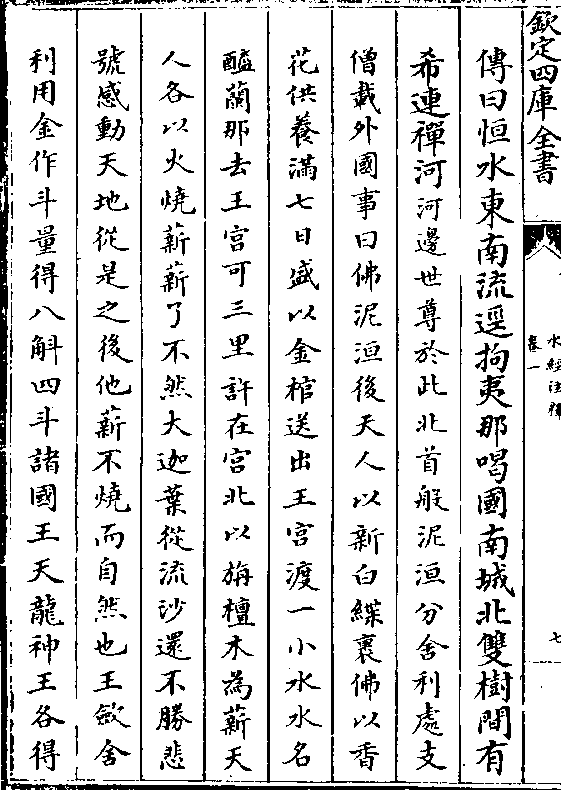 欽定四庫全書
水經注釋
卷一
七
傳曰恒水東南流逕拘夷那喝國南城北雙樹間有
希連禪河河邊世尊於此北首般泥洹分舍利處支
僧載外國事曰佛泥洹後天人以新白緤裹佛以香
花供養滿七日盛以金棺送出王宮渡一小水水名
醯蘭那去王宮可三里許在宮北以旃檀木為薪天
人各以火燒薪薪了不然大迦葉從流沙還不勝悲
號感動天地從是之後他薪不燒而自然也王斂舍
利用金作斗量得八斛四斗諸國王天龍神王各得